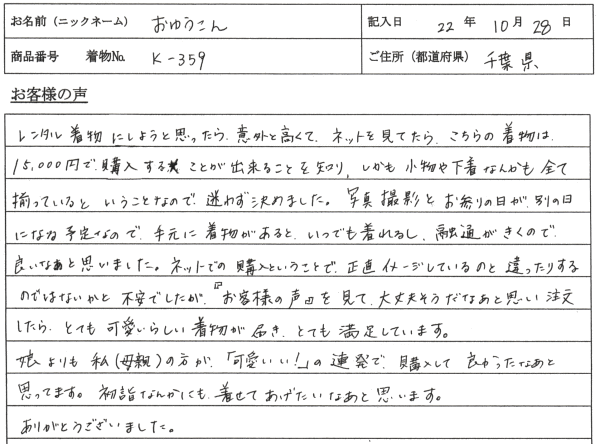 お名前（ニックネーム） おゆうこん 記入日 22 年 10 月 28 日
商品番号 着物No. K-359 ご住所（都道府県） 千葉県
お客様の声
レンタル着物にしようと思ったら、意外と高くて、ネットを見てたら、こちらの着物は、
15,000円で購入することが出来ることを知り、しかも小物や下着なんかも全て
揃っているということなので、迷わず決めました。写真撮影とお参りの日が、別の日
になる予定なので、手元に着物があると、いつでも着れるし、融通がきくので、
良いなあと思いました。ネットでの購入ということで、正直イメージしているのと違ったりする
のではないかと不安でしたが、『お客様の声』を見て、大丈夫そうだなあと思い注文
したら、とても可愛いらしい着物が届き、とても満足しています。
娘よりも私（母親）の方が、「可愛いい！」の連発で、購入して良かったなあと
思ってます。初詣なんかにも、着せてあげたいなあと思います。
ありがとうございました。